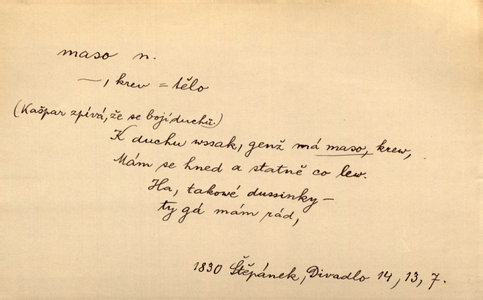 maso n.
—, krev = tělo
(Kašpar zpívá, že se bojí duchů.)
K duchu wssak, genž má maso, krew,
Mám se hned a statně co lew.
Ha, takowé dussinky —
ty gá mám rád,
1830 Štěpánek, Divadlo 14, 13, 7.